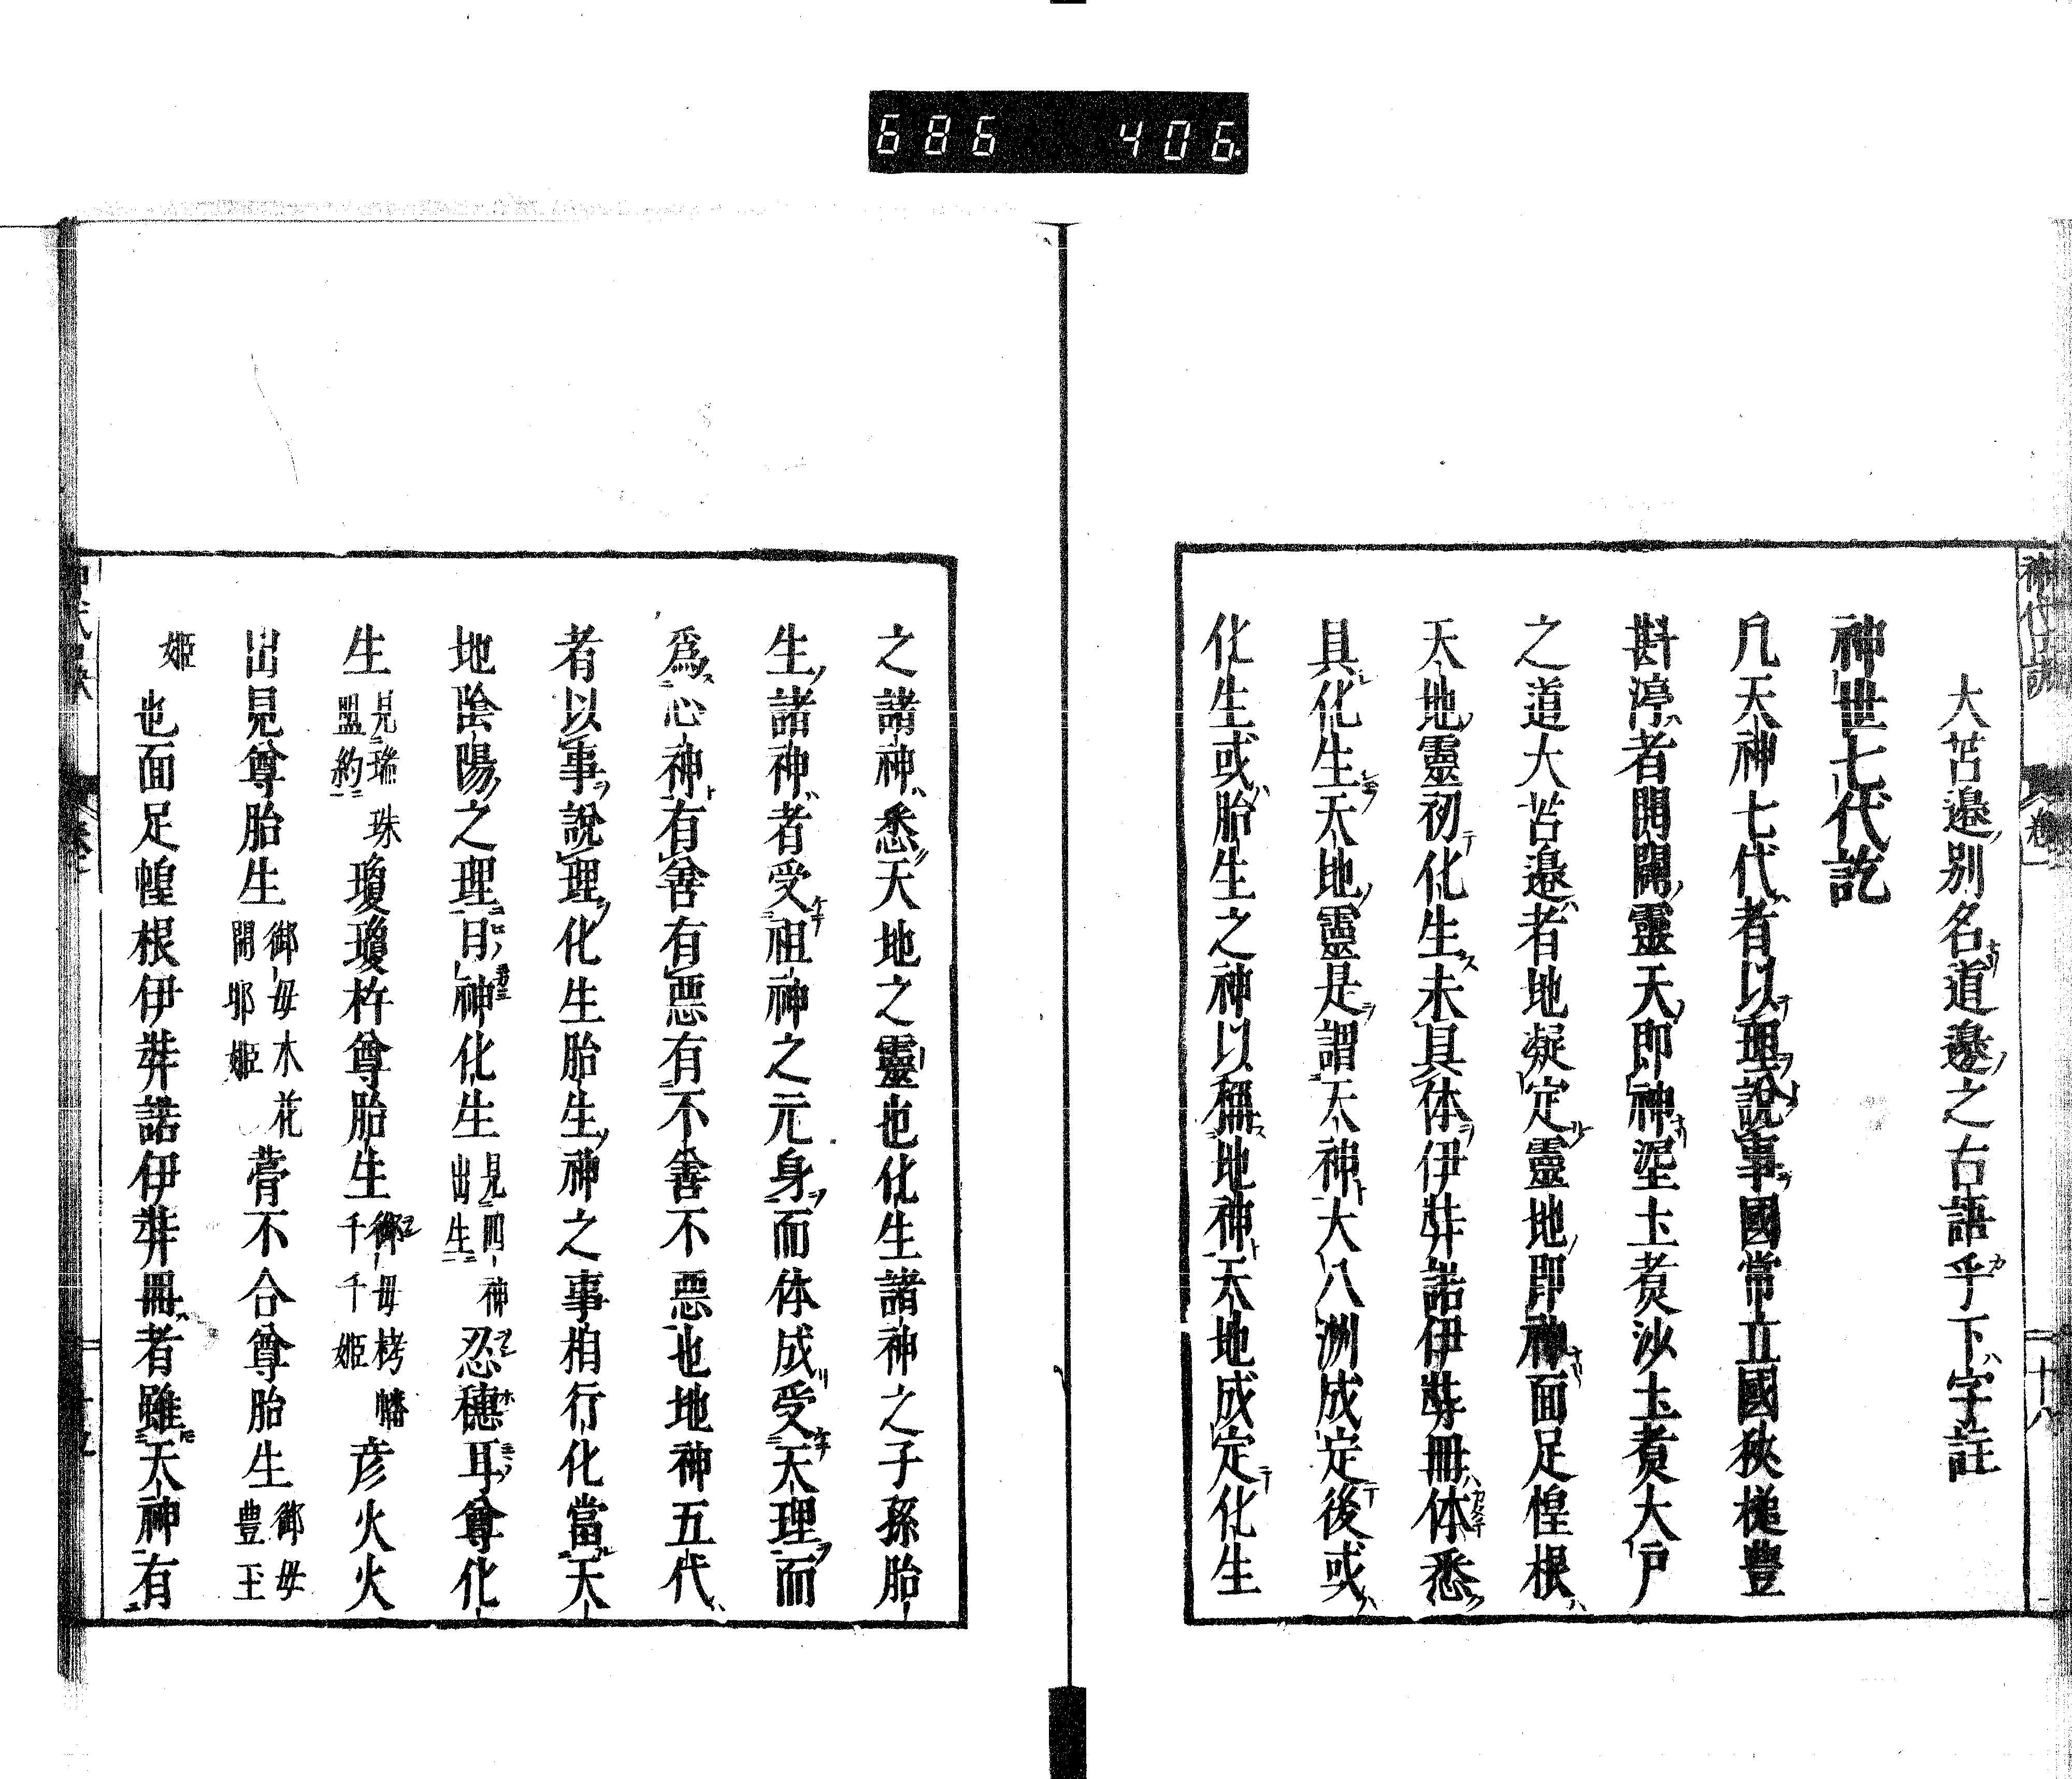 686 406.
大苫邉別名道邉之右語乎下字註
神世七代訖
凡天神七代者以理說事國常立國狹槌豊
斟渟者開闢靈天即神埿圡煑沙圡煑大戸
之道大苫邉者地凝定靈地即神面足惶根
天地靈初化生未具体伊弉諾伊弉冊体悉
具化生天地靈是謂天神大八洲成定後或
化生或胎生之神以稱地神天地成定化生
之諸神悉天地之靈也化生諸神之子孫胎
生諸神者受祖神之元身而体成受天理而
爲心神有善有惡有不善不惡也地神五代
者以事說理化生胎生神之事相行化當天
地陰陽之理日神化生見四神出生忍穗耳尊化
生見瑞珠盟約瓊瓊杵尊胎生御母栲幡千千姫彦火火
出見尊胎生御母木花開耶姫葺不合尊胎生御母豊玉
姫也面足惶根伊弉諾伊弉冊者雖天神有